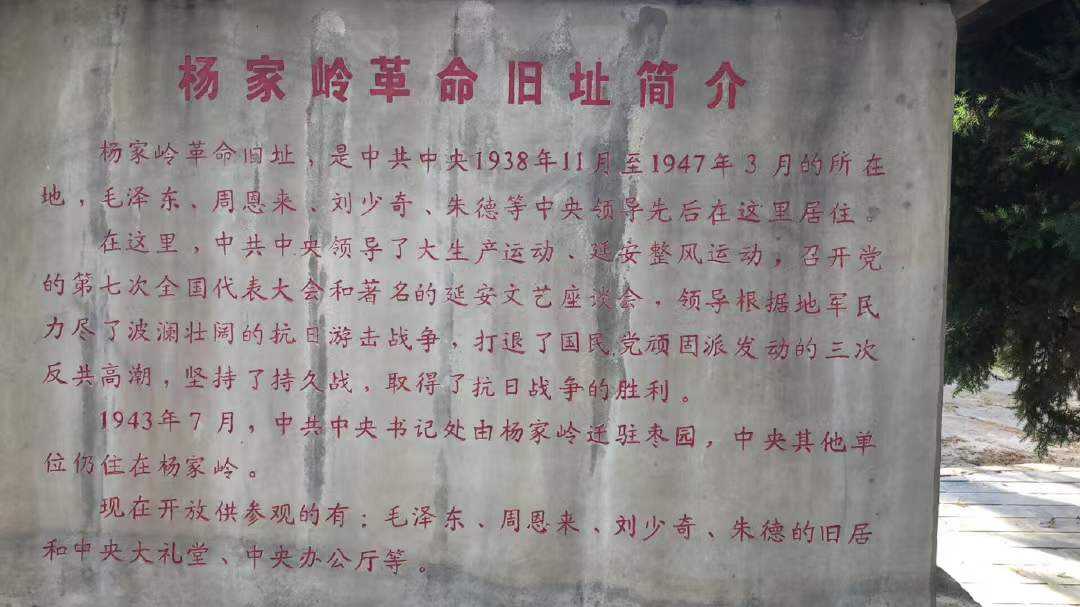 杨家岭革命旧址简介
杨家岭革命旧址，是中共中央1938年11月至1947年3月的所在
地，毛泽东、周恩来、刘少奇、朱德等中央领导先后在这里居住。
在这里，中共中央领导了大生产运动、延安整风运动，召开党
的第七次全国代表大会和著名的延安文艺座谈会，领导根据地军民
力尽了波澜壮阔的抗日游击战争，打退了国民党顽固派发动的三次
反共高潮，坚持了持久战，取得了抗日战争的胜利。
1943年7月，中共中央书记处由杨家岭迁驻枣园，中央其他单
位仍住在杨家岭。
现在开放供参观的有：毛泽东、周恩来、刘少奇、朱德的旧居
和中央大礼堂、中央办公厅等。